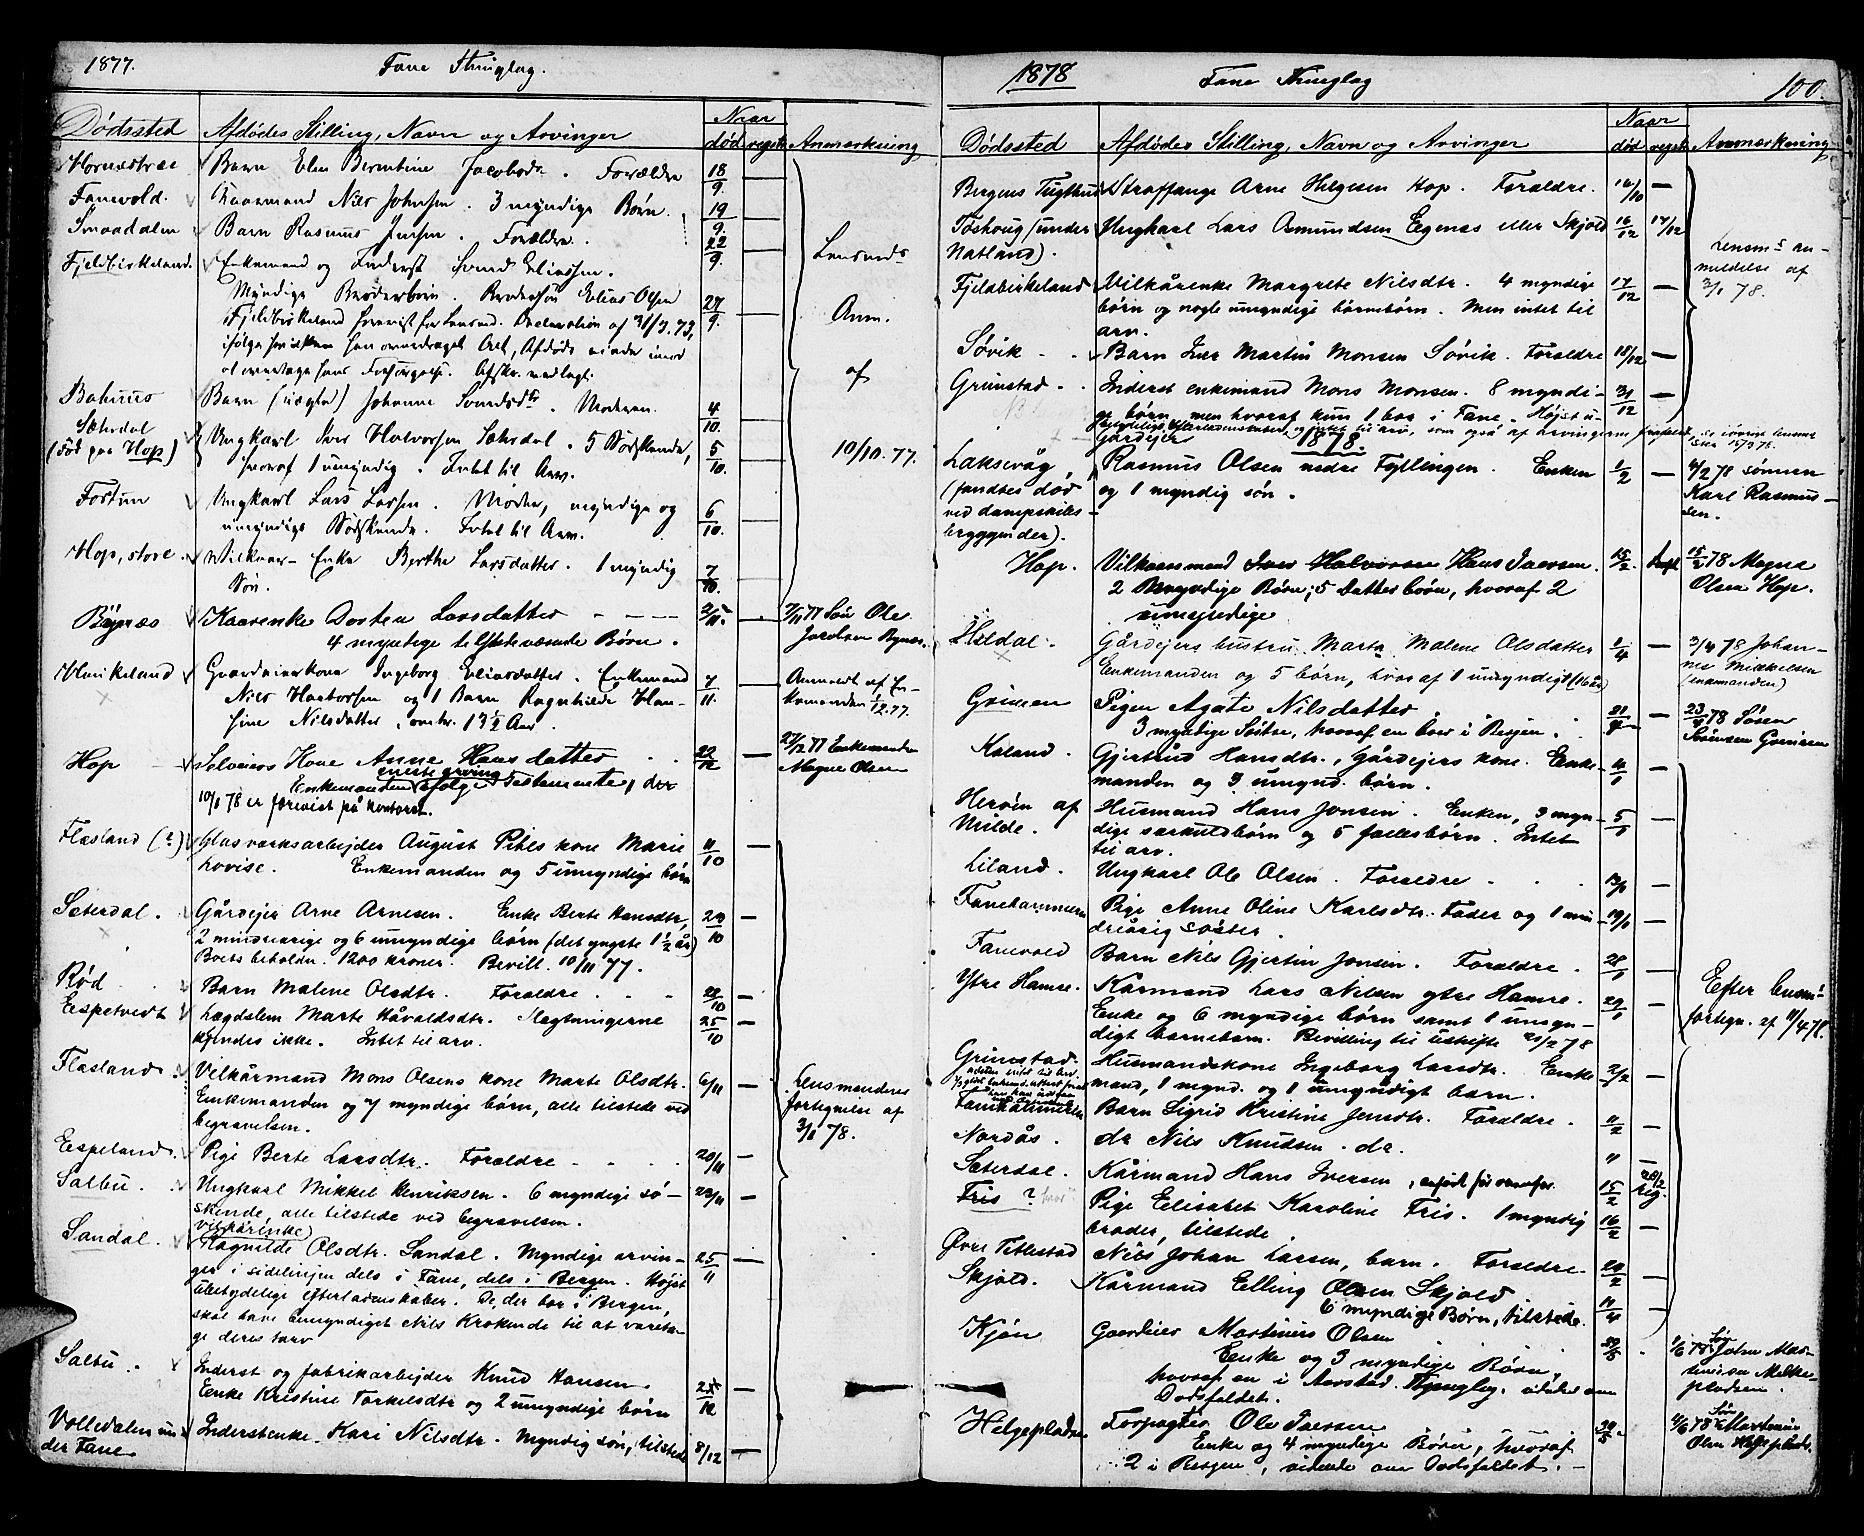 1877.
Fane Thinglag.
Dødssted
Afdødes Stilling, Navn og Arvinger
Naar
død
regstr
Anmærkning
Barn Elen Berentine Jacobsdr. Forældre
18/9.
Fanevold.
Kaarmand Nils Johnsen. 3 myndige Børn.
19/9.
Smaadalen
Barn Rasmus Jensen. Forældre.
22/9.
Fjeldbirkeland.
Enkemand og Inderst Svend Eliassen.
Myndige Broderbørn. Brodersøn Elias Olsen
27/9.
Lensmds
Anm.
af
10/10. 77.
Barn (uægte) Johanne Svendsdtr. Moderen.
4/10.
Sæterdal
(død paa Hop)
Ungkarl Iver Halvorsen Sæterdal. 5 Sødskende,
hvoraf 1 umyndig. Intet til Arv.
5/10.
Ungkarl Lars Larsen. Moder, myndige og
umyndige Sødskende. Intet til Arv.
6/10.
Hop, store.
Vilkaar-Enke Berthe Larsdatter. 1 myndig
Søn.
7/10.
Bøgnæs
Kaarenke Dorten Larsdatter
4 myndige tilstedeværende Børn.
Søn Ole
Gaardeierkone Ingeborg Eliasdatter. Enkemand
Nils Haavorsen og 1 Barn Ragnhilde Han-
sine Nilsdatter, omtr. 13 1/2 Aar.
7/11.
Anmeldt af En-
kemanden 1/12.77.
Hop
Selveiers Kone Anne Hansdatter
22/12
Enkemanden
eneste arving
ifølge Testamente, der
10/1 78 er forevist på kontoret.
27/12 77 Enkemanden
Magne Olsen
Flæsland (?)
Glasværksarbejder August Pihls kone Marie
Lovise. Enkemanden og 5 umyndige børn
11/10
Sæterdal.
Gårdejer Arne Arnesen. Enke Berte Hansdtr,
2 mindreårige og 6 umyndige børn (det yngste 1 1/2 år)
Boets beholdn. 1200 kroner. Bevill. 10/11 77.
Rød
Barn Malene Olsdtr. Forældre
28/10
Espetvedt
Lægdslem Marte Håvaldsdtr. Slægtningerne
kjendes ikke. Intet til arv.
25/10
Flæsland.
Vilkårmand Mons Olsens kone Marte Olsdtr.
Enkemanden og 7 myndige børn, alle tilstede ved
begravelsen.
6/11
Lensmandens
fortegnelse af
3/1 78.
Espeland.
Pige Berte Larsdtr. Forældre
20/11
Salbu.
Ungkarl Mikkel Henriksen. 6 myndige sø-
skende, alle tilstede ved begravelsen.
23/11
Sandal.
Vilkårenke
Ragnilde Olsdtr. Sandal. Myndige arvin-
ger i sidelinjen dels i Fane, dels i Bergen. Højst
ubetydelige efterladenskaber. De, der bor i Bergen,
skal have bemyndiget Nils Krokeide til at vareta-
ge deres tarv
25/11
Salbu.
Inderst og fabrikarbejder Knud Hansen
Enke Kristine Torkelsdtr og 2 umyndige børn
Volledalen un-
der Fane
Inderstenke Kari Nilsdtr. Myndig søn, tilstede
8/12
1878
Fane Thinglag
100.
Dødssted
Afdødes Stilling, Navn og Arvinger
Naar
død
regstr
Anmærkning
Bergens Tugthus
Straffange Arne Helgesen Hop. Foræeldre.
16/10
(under
Natland).
Ungkarl Lars Amundsen Egenæs eller Skjold
16/12
17/12
Lensms an-
meldelse af
3/1 78.
Fjeldbirkeland
Vilkårenke Margrete Nilsdtr. 4 myndige
børn og nogle umyndige børnebørn. Men intet til
arv.
17/12
Søvik
Barn Iver Martin Monsen Søvik. Forældre
18/12
Grimstad.
Inderst enkemand Mons Monsen. 8 myndi-
ge børn, men hvoraf kun 1 bor i Fane. Højst u-
31/12
1878.
Laksevåg,
(fandtes død
ved dampskibs-
byggeriet).
Gårdejer
Rasmus Olsen nedre Fyllingen. Enken
og 1 myndig søn.
1/2
4/2 78 sønnen
Karl Rasmus-
sen.
Hop.
Vilkaarsmand Iver Halvorsen Hans Iversen.
2 myndige Børn; 5 Datterbørn, hvoraf 2
umyndige
15/2.
15/2 78 Magne
Olsen Hop.
Hildal.
Gårdejers hustru Marta Malene Olsdatter
Enkemanden og 5 børn, hvoraf 1 umyndigt (16 år)
1/4
3/4 78 Johan-
nes Mikkelsen
(enkemanden)
Grimen
Pigen Agate Nilsdatter
3 myndige Søstre, hvoraf en boer i Bergen.
Kaland.
Gjertrud Hansdtr., Gårdejers kone. Enke-
manden og 3 umynd. børn.
Hervin af
Milde.
Husmand Hans Jonsen. Enken, 3 myn-
dige særkuldbørn og 5 fællesbørn. Intet
til arv.
5/1
Liland.
Ungkarl Ole Olsen. Forældre
13/1
Fanehammeren
Pige Anne Oline Karlsdtr. Fader og 1 min-
dreårig søster.
19/1
Fanevold
Barn Nils Gjertin Jonsen. Forældre.
28/1
Ytre Hamre.
Kårmand Lars Nilsen ytre Hamre.
Enke og 6 myndige børn samt 1 umyn-
digt barnebarn. Bevilling til uskifte 21/2 78
29/1
Efter lensms
fortegn. af 11/4 78.
Grimstad.
Husmandskone Ingeborg Larsdtr. Enke-
mand, 1 mynd. og 1 umyndigt barn.
2/2
Fanehammeren
Barn Sigrid Kristine Jensdtr. Forældre.
11/2
Nordås.
do Nils Knudsen. do.
"
Sæterdal.
Kårmand Hans Iversen,
15/2
Fris ?
Pige Elisabet Karoline Fris. 1 myndig
broder, tilstede.
16/2
Øvre Titlestad
Nils Johan Larsen, barn. Forældre.
Skjold.
Kårmand Elling Olsen Skjold
6 myndige Børn, tilstede.
Gaardeier Martinius Olsen
Enke og 3 myndige Børn,
hvoraf en i Aarstad Thinglag, vidende om
Dødsfaldet.
Søn
Helgepladsen
Forpagter Ole Iversen
Enke og 4 myndige Børn, hvoraf
2 i Bergen, vidende om Dødsfaldet.
Søn